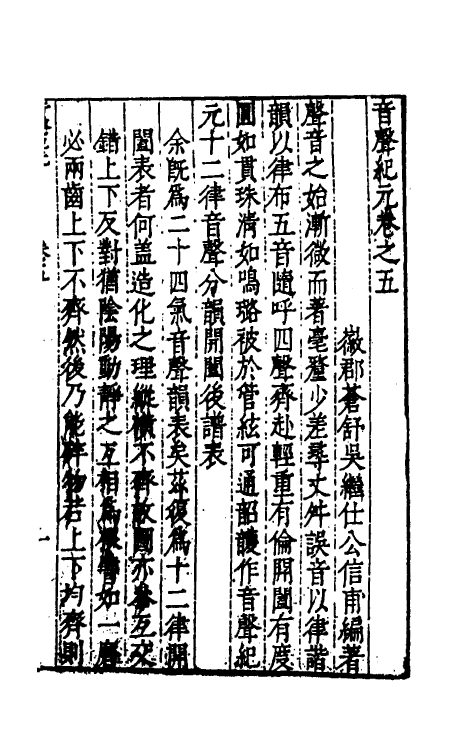 音聲紀元卷之五
徽郡蒼舒吳繼仕公信甫編著
聲音之始漸微而著毫釐少差尋丈舛誤音以律諧
韻以律布五音隨呼四聲齊赴輕重有倫開闔有度
圓如貫珠清如鳴璐被於管絃可通韶頀作音聲紀
元十二律音聲分韻開闔後譜表
余既爲二十四氣音聲韻表矣茲復爲十二律開
闔表者何盖造化之理縱橫不齊故圖亦參互交
錯上下反對猶陰陽動靜之互相爲根譬如一磨
必兩齒上下不齊然後乃能碎物若上下均齊則
卷五
一